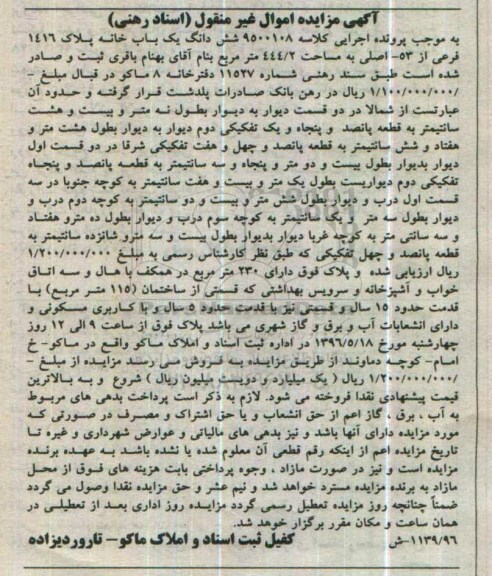 آگهی مزایده اموال غیر منقول (اسناد رهنی)
به موجب پرونده اجرایی کلاسه ۹۵۰۰۱۰۸ شش دانگ یک باب خانه پلاک ۱۴۱۶
فرعی از ۵۳- اصلی به مساحت ۴۴۴/۲ متر مربع بنام آقای بهنام باقری ثبت و صادر
شده است طبق سند رهنی شماره ۱۱۵۲۷ دفترخانه ۸ ماکو در قبال مبلغ -
/۱/۱۰۰/۰۰۰/۰۰۰ ریال در رهن بانک صادرات پلدشت قرار گرفته و حدود آن
عبارتست از شمالا در دو قسمت دیوار به دیوار بطول نه متر و بیست و هشت
سانتیمتر به قطعه پانصد و پنجاه و یک تفکیکی دوم دیوار به دیوار بطول هشت متر و
هفتاد و شش سانتیمتر به قطعه پانصد و چهل و هفت تفکیکی شرقا در دو قسمت اول
دیوار بدیوار بطول بیست و دو متر و پنجاه و سه سانتیمتر به قطعه پانصد و پنجاه
تفکیکی دوم دیواریست بطول یک متر و بیست و هفت سانتیمتر به کوچه جنوبا در سه
قسمت اول درب و دیوار بطول شش متر و بیست و دو سانتیمتر به کوچه دوم درب و
دیوار بطول سه متر و یک سانتیمتر به کوچه سوم درب و دیوار بطول ده مترو هفتاد
و سه سانتی متر به کوچه غربا دیوار بدیوار بطول بیست و سه مترو شانزده سانتیمتر به
قطعه پانصد و چهل تفکیکی که طبق نظر کارشناس رسمی به مبلغ ۱/۲۰۰/۰۰۰/۰۰۰
ریال ارزیابی شده و پلاک فوق دارای ۲۳۰ متر مربع در همکف با هال و سه اتاق
خواب و آشپزخانه و سرویس بهداشتی که قسمتی از ساختمان (۱۱۵ متر مربع) با
قدمت حدود ۱۵ سال و قسمتی نیز با قدمت حدود ۵ سال و با کاربری مسکونی و
دارای انشعابات آب و برق و گاز شهری می باشد پلاک فوق از ساعت ۹ الی ۱۲ روز
چهارشنبه مورخ ۱۳۹۶/۵/۱۸ در اداره ثبت اسناد و املاک ماکو واقع در ماکو- خ
امام- کوچه دماوند از طریق مزایده به فروش می رسد مزایده از مبلغ -
/۱/۲۰۰/۰۰۰/۰۰۰ ریال ( یک میلیارد و دویست میلیون ریال ) شروع و به بالاترین
قیمت پیشنهادی نقدا فروخته می شود. لازم به ذکر است پرداخت بدهی های مربوط
به آب ، برق ، گاز اعم از حق انشعاب و یا حق اشتراک و مصرف در صورتی که
مورد مزایده دارای آنها باشد و نیز بدهی های مالیاتی و عوارض شهرداری و غیره تا
تاریخ مزایده اعم از اینکه رقم قطعی آن معلوم شده یا نشده باشد به عهده برنده
مزایده است و نیز در صورت مازاد ، وجوه پرداختی بابت هزینه های فوق از محل
مازاد به برنده مزایده مسترد خواهد شد و نیم عشر و حق مزایده نقدا وصول می گردد
ضمناً چنانچه روز مزایده تعطیل رسمی گردد مزایده روز اداری بعد از تعطیلی در
همان ساعت و مکان مقرر برگزار خواهد شد.
۱۱۳۹/۹۶-ش کفیل ثبت اسناد و املاک ماکو- تاروردیزاده